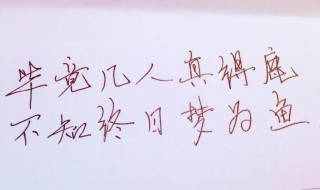 毕竟几人真得鹿
不知终日梦为鱼